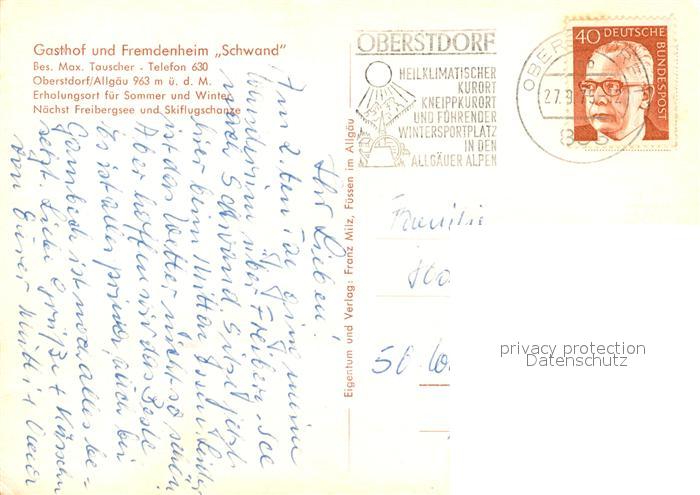 Gasthof und Fremdenheim „Schwand“
Bes. Max. Tauscher - Telefon 630
Oberstdorf/Allgäu 963 m ü. d. M.
Erholungsort für Sommer und Winter
Nächst Freibergsee und Skiflugschanze
OBERSTDORF
HEILKLIMATISCHER
KURORT
KNEIPPKURORT
UND FÜHRENDER
WINTERSPORTPLATZ
IN DEN
ALLGÄUER ALPEN
40 DEUTSCHE
BUNDESPOST
27.9.7
Eigentum und Verlag: Franz Milz, Füssen im Allgäu
Ihr Lieben!
Am 2. ten
Wanderung über Freiberg-See
nach Schwand sitzt jetzt
hier beim Mittag Essen. Leider
ist das Wetter nicht so schön
Aber hoffen wir das Beste
es ist alles prima, auch bei
ist noch alles be-
setzt. Liebe Grüße + Küsschen
von Eurer Mutti +
Familie
50
privacy protection
Datenschutz